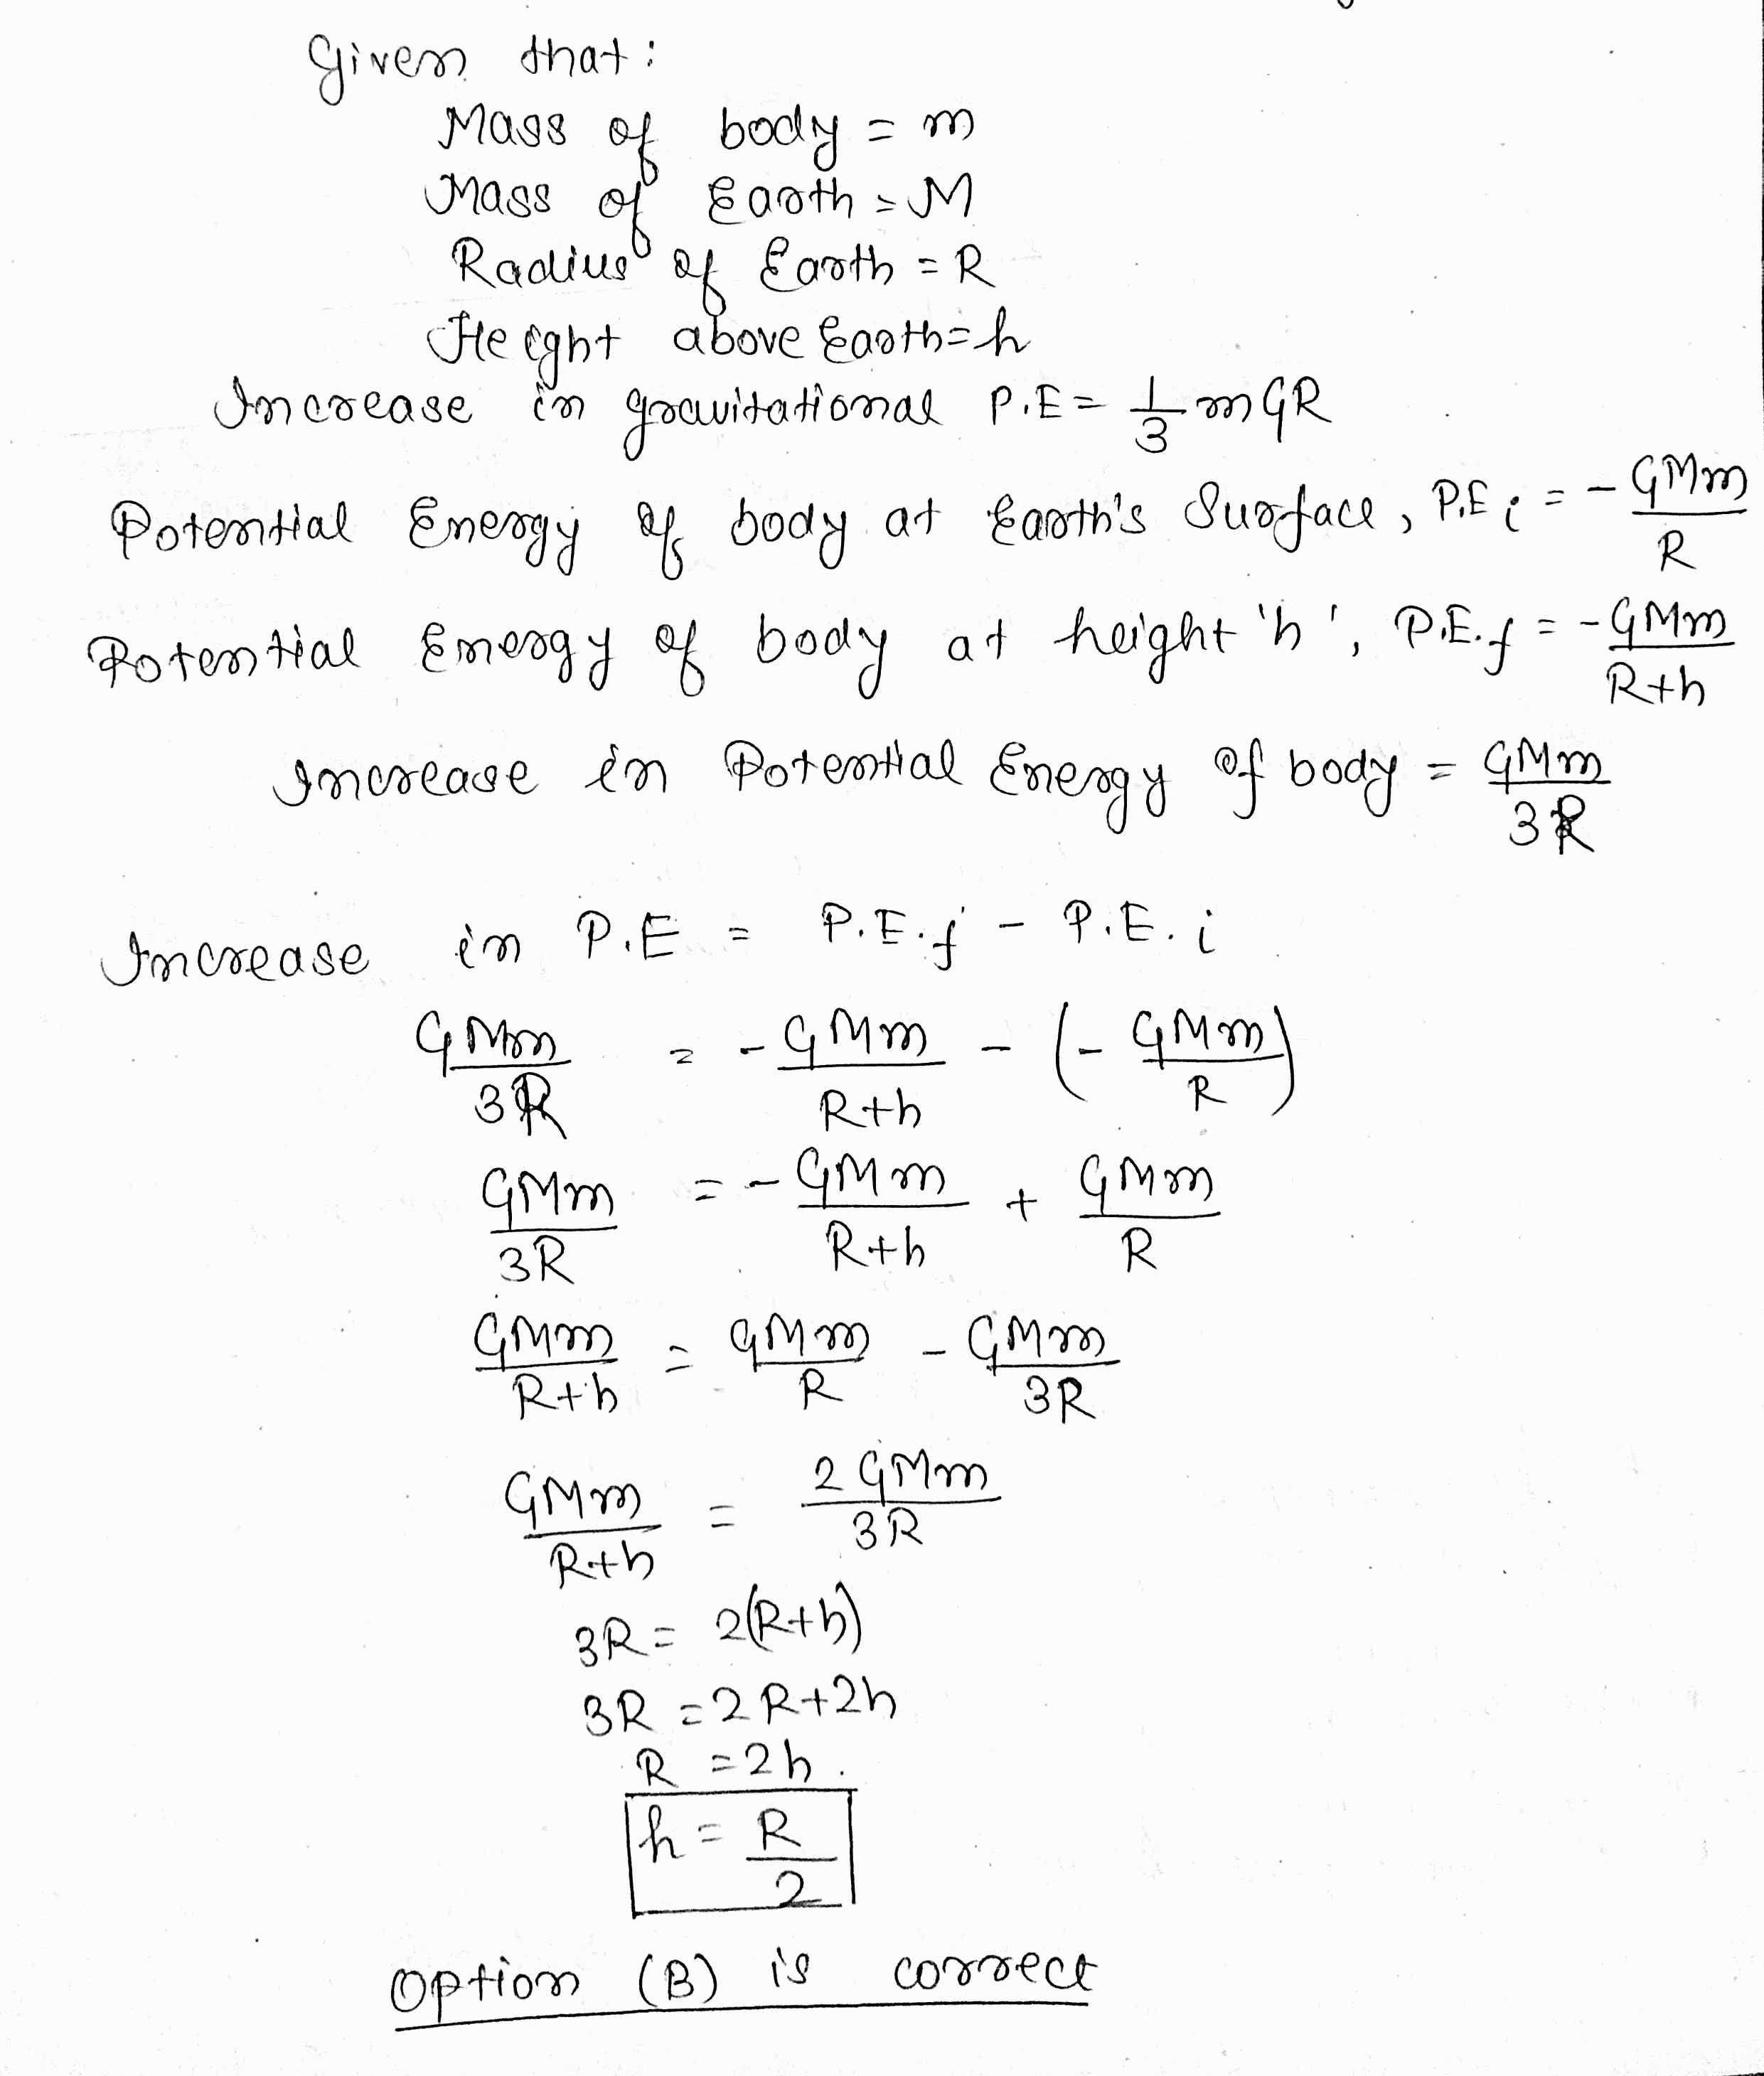 Given that:
Mass of body = m
Mass of Earth = M
Radius of Earth = R
Height above Earth = h
Increase in gravitational P.E = 1/3 mGR
Potential Energy of body at Earth's Surface, P.E i = - GMm/R
Potential Energy of body at height 'h', P.E.f = - GMm/R+h
Increase in Potential Energy of body = GMm/3R
Increase in P.E = P.E.f - P.E.i
GMm/3R = - GMm/R+h - (- GMm/R)
GMm/3R = - GMm/R+h + GMm/R
GMm/R+h = GMm/R - GMm/3R
GMm/R+h = 2GMm/3R
3R = 2(R+h)
3R = 2R+2h
R = 2h.
h = R/2
Option (B) is correct